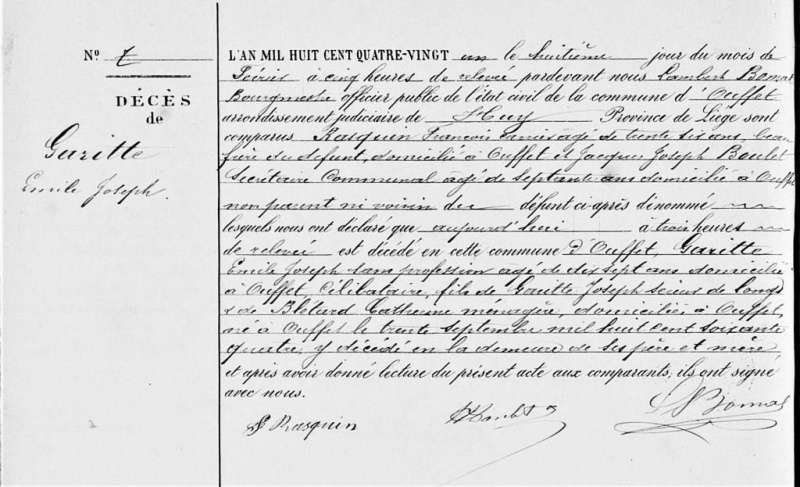 N° 7
DÉCÈS
de
Garitte
Emile Joseph.
L'AN MIL HUIT CENT QUATRE-VINGT un le huitième jour du mois de
Février à cinq heures de relevée pardevant nous Lambert
Bourgmestre officier public de l'état civil de la commune d'Ouffet
arrondissement judiciaire de Huy Province de Liége sont
comparus Rasquin François âgé de trente six ans, beau
frère du défunt, domicilié à Ouffet et Jacques Joseph Boulet
Secrétaire Communal âgé de septante ans domicilié à Ouffet
non parent ni voisin du défunt ci-après dénommé
lesquels nous ont déclaré que aujourd'hui à trois heures
de relevée est décédé en cette commune d'Ouffet, Garitte
Emile Joseph sans profession agé de dix sept ans domicilié
à Ouffet, Célibataire, fils de Garitte Joseph scieur de long
& de Blétard Catherine ménagère, domiciliés à Ouffet,
né à Ouffet le trente septembre mil huit cent soixante
quatre, y décédé en la demeure de ses père et mère
et après avoir donné lecture du présent acte aux comparants, ils ont signé
avec nous.
Rasquin